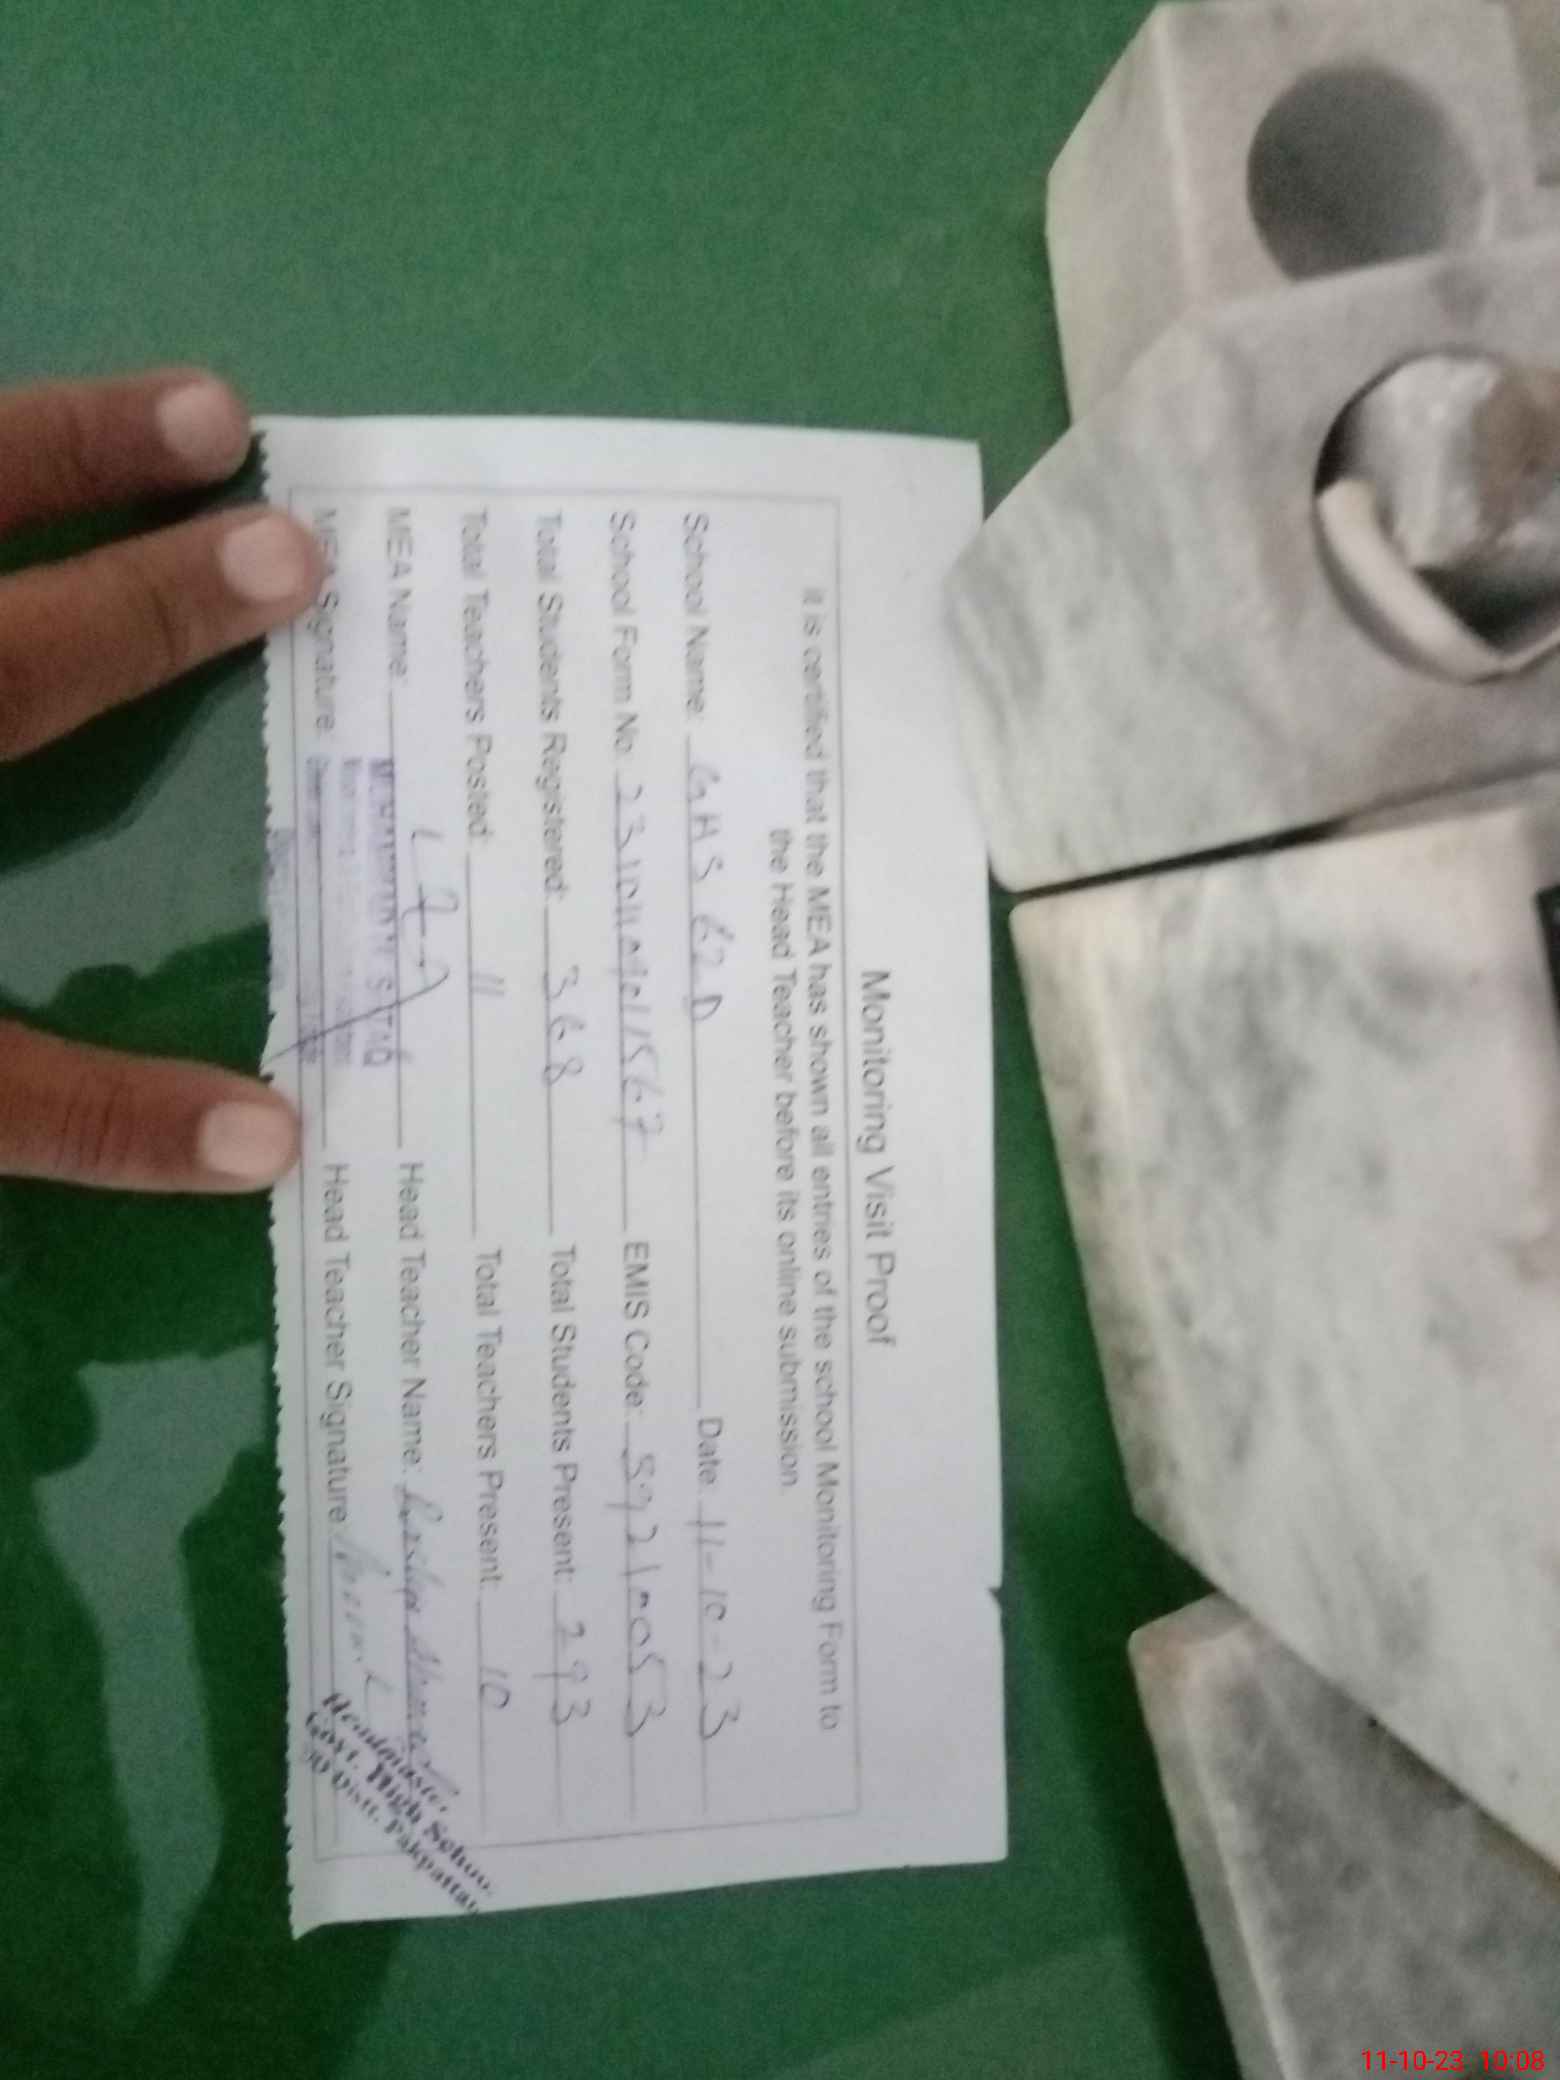 Monitoring Visit Proof
it is certified that the MEA has shown all entries of the school Monitoring Form to
the Head Teacher before its online submission
School Name: GHS 62D Date: 11-10-23
School Form No. EMIS Code: 39210053
Total Students Registered: 368 Total Students Present: 293
Total Teachers Posted: 11 Total Teachers Present: 10
MEA Name: Head Teacher Name:
MEA Signature: Head Teacher Signature
Headmaster
Govt. High School
Distt. Pakpattan
11-10-23 10:08